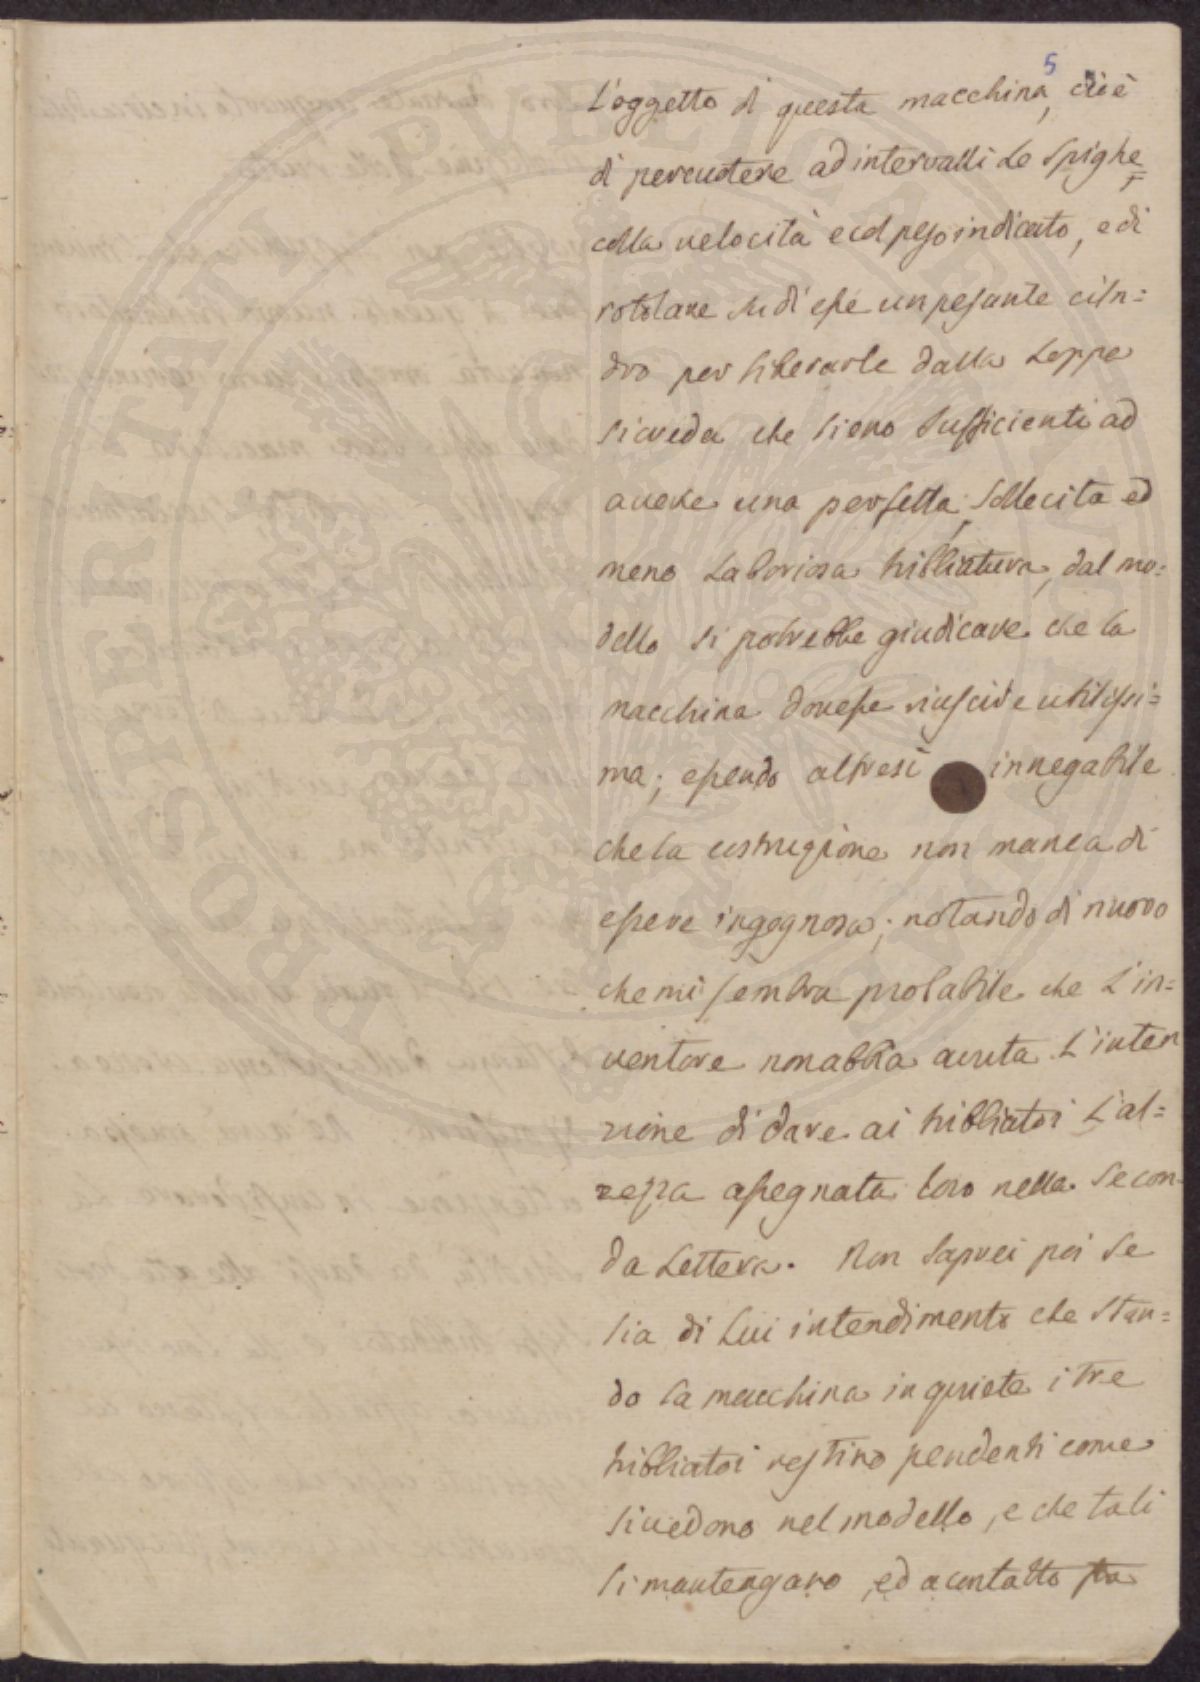 5
L'oggetto di questa macchina, cioè
di percuotere ad intervalli le Spighe,
colla velocità e col peso indicato, e di
rotolare su di esse un pesante cilin=
dro per liberarle dalla Loppa
si creda che sieno Sufficienti ad
avere una perfetta, Sollecita ed
meno Laboriosa tribbiatura, dal mo=
dello si potrebbe giudicare che la
macchina dovesse riuscire utilissi=
ma; essendo altresì innegabile
che la costruzione non manca di
essere ingegnosa; notando di nuovo
che mi sembra probabile che L'in=
ventore non abbia avuta L'inten
zione di dare ai tribbiatoi L'al=
tezza assegnata loro nella Secon
da Lettera. Non Saprei poi Se
Sia di Lui intendimento che Stan=
do la macchina in quiete i tre
tribbiatoi restino pendenti come
si vedono nel modello, e che tali
Si mantengano, ed a contatto fra
PROSPERITATI PVBLICAE AVGENDAE